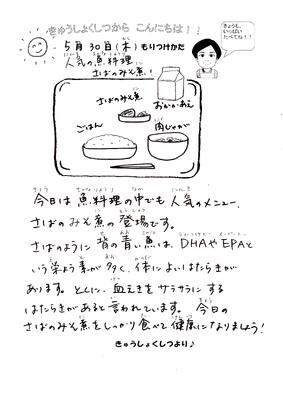 きゅうしょくしつから こんにちは！！
きょうも、
いっぱい
たべてね！！
5月30日(木)もりつけかた
人気の魚料理
さばのみそ煮！
さばのみそ煮
おかかあえ
ごはん
肉じゃが
今日は魚料理の中でも人気のメニュー、
さばのみそ煮の登場です。
さばのように背の青い魚は、DHAやEPAと
いう栄よう素が多く、体によいはたらきが
あります。とくに、血えきをサラサラにする
はたらきがあると言われています。今日の
さばのみそ煮をしっかり食べて健康になりましょう！
きゅうしょくしつより♪